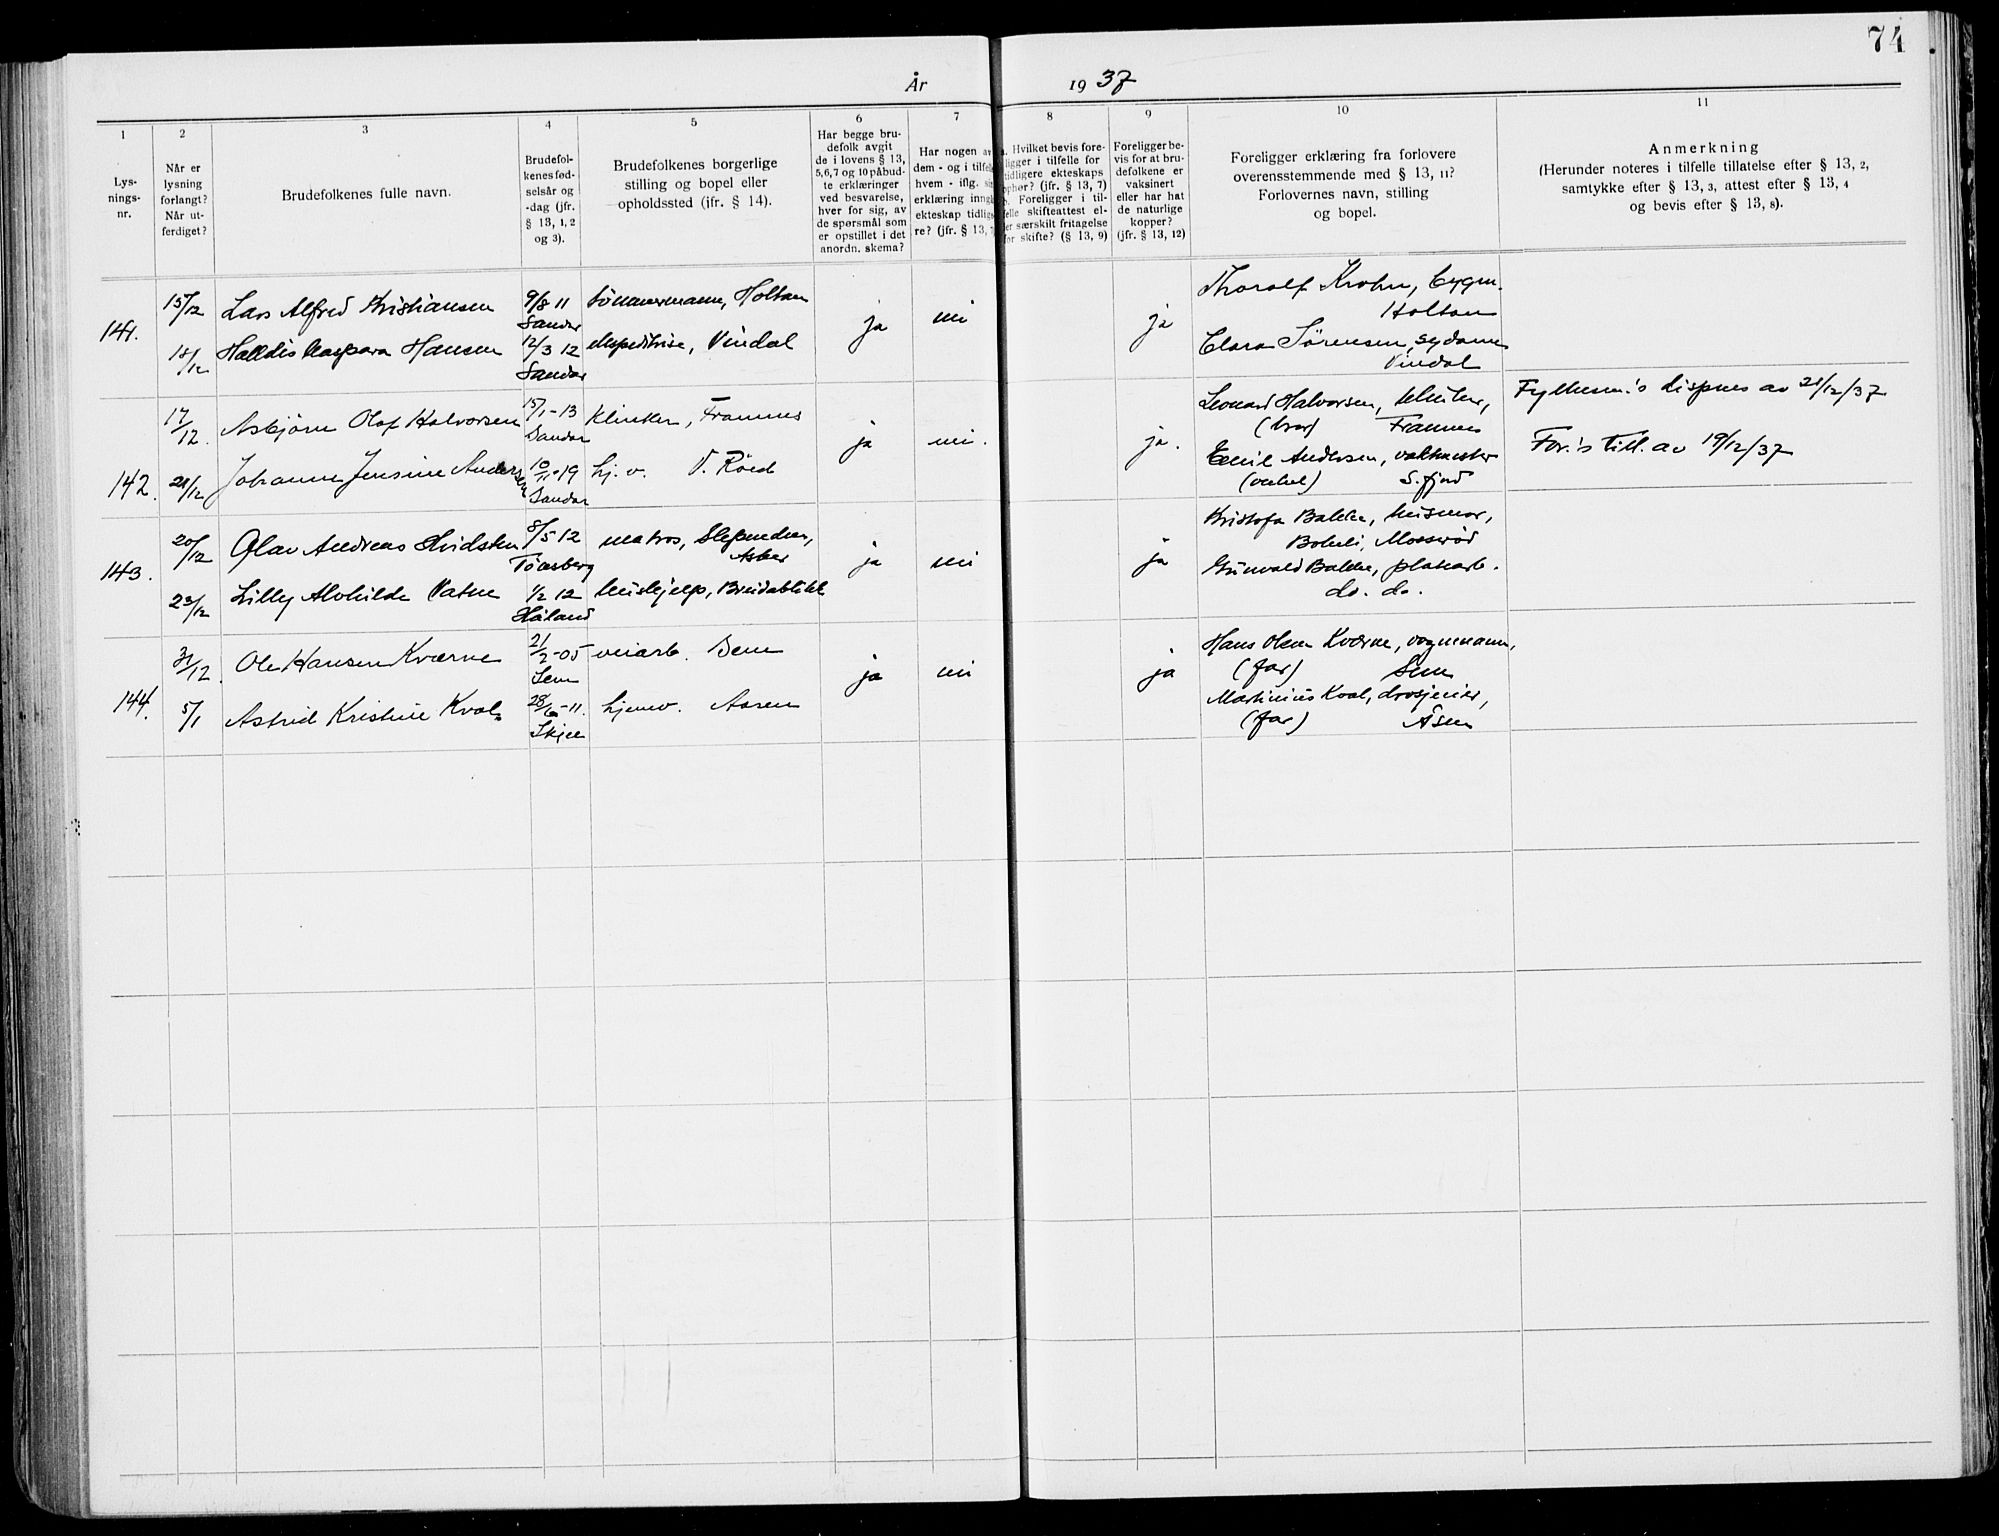 74
År 1937
1
2
3
4
5
6
7
8
9
10
11
Lys-
nings-
nr.
Når er
lysning
forlangt?
Når ut-
ferdiget?
Brudefolkenes fulle navn.
Brudefol-
kenes fød-
selsår og
-dag (jfr.
§ 13, 1, 2
og 3).
Brudefolkenes borgerlige
stilling og bopel eller
opholdssted (jfr. § 14).
Har begge bru-
defolk avgit
de i lovens § 13,
5,6,7 og 10 påbud-
te erklæringer
ved besvarelse,
hver for sig, av
de spørsmål som
er opstillet i det
anordn. skema?
Har nogen av
dem - og i tilfel
hvem - iflg. si
erklæring inngå
ekteskap tidlig
re? (jfr. § 13, 7
a. Hvilket bevis fore-
ligger i tilfelle for
tidligere ekteskaps
ophør? (jfr. § 13, 7)
b. Foreligger i til-
felle skifteattest el-
ler særskilt fritagelse
for skifte? (§ 13, 9)
Foreligger be-
vis for at bru-
defolkene er
vaksinert
eller har hat
de naturlige
kopper?
(jfr. § 13, 12)
Foreligger erklæring fra forlovere
overensstemmende med § 13, 11?
Forlovernes navn, stilling
og bopel.
Anmerkning
(Herunder noteres i tilfelle tillatelse efter § 13, 2,
samtykke efter § 13, 3, attest efter § 13, 4
og bevis efter § 13, 8).
141.
15/12
18/12
Lars Alfred Kristiansen
Halldis Kaspara Hansen
9/8 11
Sandar
12/3 12
Sandar
tömmermann, Holtan
ekspeditrise, Vindal
ja
nei
ja
Thoralf Krohn, bygm.
Holtan
Clara Sørensen, sydame
Vindal
142.
17/12.
21/12
Asbjørn Olaf Halvorsen
Johanne Jensine Andersen
15/1-13
Sandar
10/11-19
Sandar
Klinker, Framnes
hj. v. V. Röed
ja
nei.
ja.
Leonard Halvorsen,
(bror) Framnes
Emil Andersen, vaktmester
(onkel) S.fjord
Fylkesm.'s dispens av 21/12/37
For.'s till. av 19/12/37
143.
20/12
23/12
Olav Andreas Hvidsten
Lilly Alvhilde Vatne
8/5 12
Tönsberg
1/2 12
Håland
matros, Slependen,
Asker
hushjelp, Breidablikk
ja
nei
ja
Kristofa Bakke, husmor,
Mosserød
Gunvald Bakke, platearb.
do. do.
144.
31/12.
5/1
Ole Hansen Kværne
Astrid Kristine Kval
2/2-05
Sem
28/6-11.
Skjee
veiarb. Sem
hjemv. Aasen
ja
nei
ja
Hans Olsen Kværne, vognmann,
(far) Sem
Martinius Kval, drosjeeier,
(far) Åsen